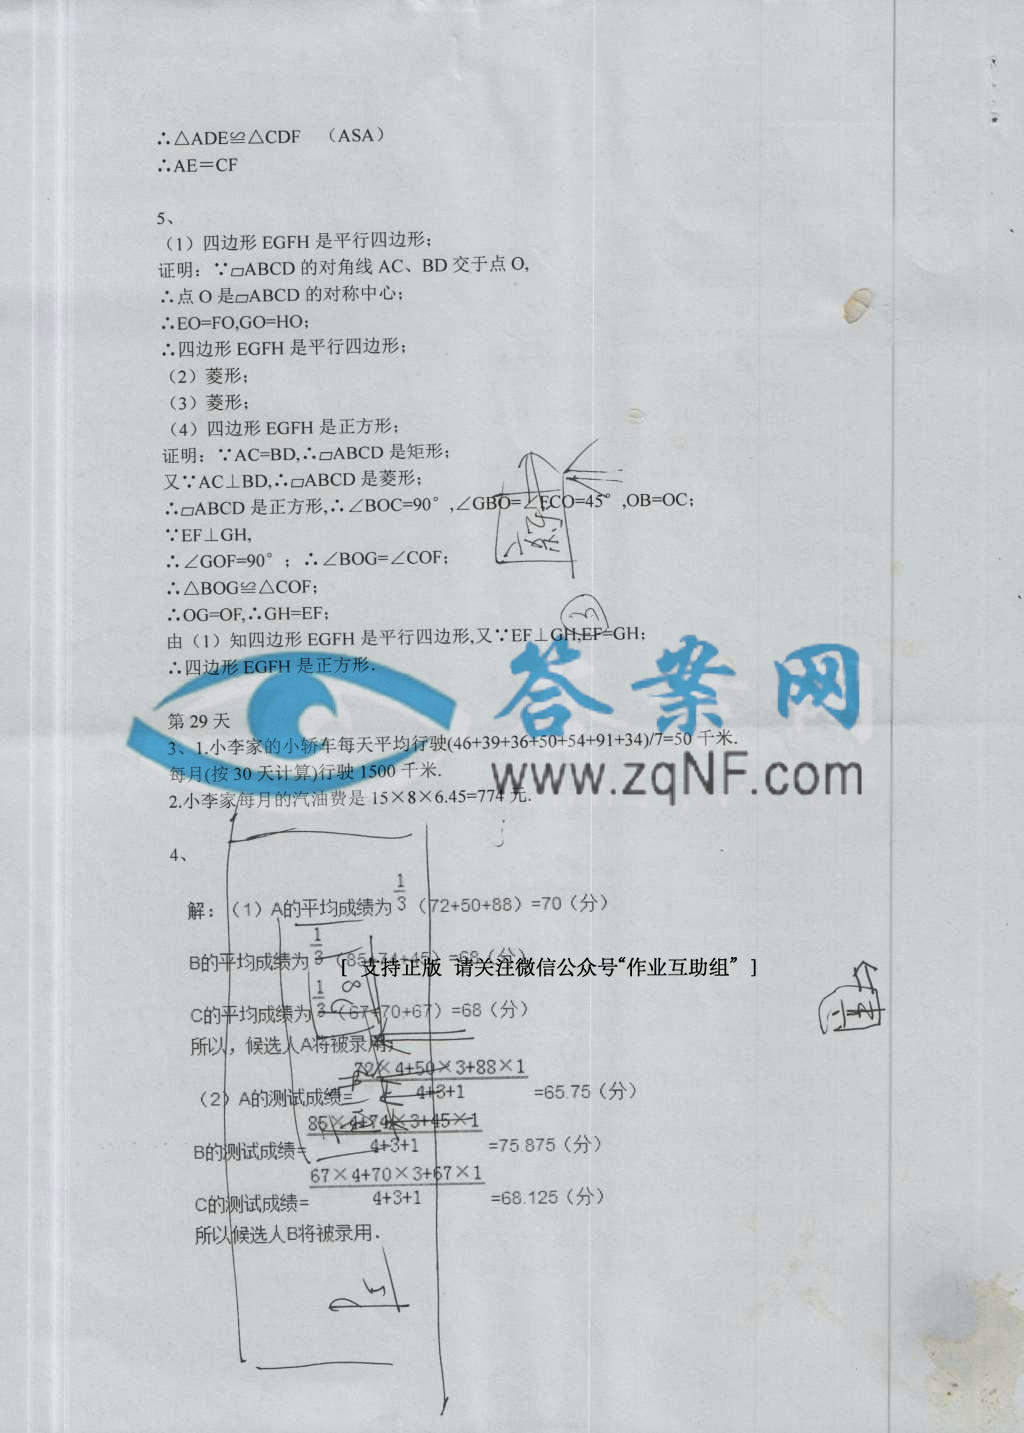 ∴△ADE≌△CDF （ASA）
∴AE＝CF
5、
（1）四边形 EGFH 是平行四边形；
证明：∵▱ABCD 的对角线 AC、BD 交于点 O,
∴点 O 是▱ABCD 的对称中心；
∴EO=FO,GO=HO；
∴四边形 EGFH 是平行四边形；
（2）菱形；
（3）菱形；
（4）四边形 EGFH 是正方形；
证明：∵AC=BD,∴▱ABCD 是矩形；
又∵AC⊥BD,∴▱ABCD 是菱形；
∴▱ABCD 是正方形,∴∠BOC=90°,∠GBO=∠ECO=45°,OB=OC；
∵EF⊥GH,
∴∠GOF=90°；∴∠BOG=∠COF；
∴△BOG≌△COF；
∴OG=OF,∴GH=EF；
3
由（1）知四边形 EGFH 是平行四边形,又∵EF⊥GH,EF=GH；
∴四边形 EGFH 是正方形.
答案网
www.zqNF.com
第 29 天
3、1.小李家的小轿车每天平均行驶(46+39+36+50+54+91+34)/7=50 千米.
每月(按 30 天计算)行驶 1500 千米.
2.小李家每月的汽油费是 15×8×6.45=774 元.
4、
解：（1）A的平均成绩为1/3（72+50+88）=70（分）
B的平均成绩为1/3（85+74+45）=68（分）
[ 支持正版 请关注微信公众号“作业互助组” ]
C的平均成绩为1/3（67+70+67）=68（分）
所以，候选人A将被录用；
（2）A的测试成绩=72×4+50×3+88×1/4+3+1=65.75（分）
B的测试成绩=85×4+74×3+45×1/4+3+1=75.875（分）
C的测试成绩=67×4+70×3+67×1/4+3+1=68.125（分）
所以候选人B将被录用.